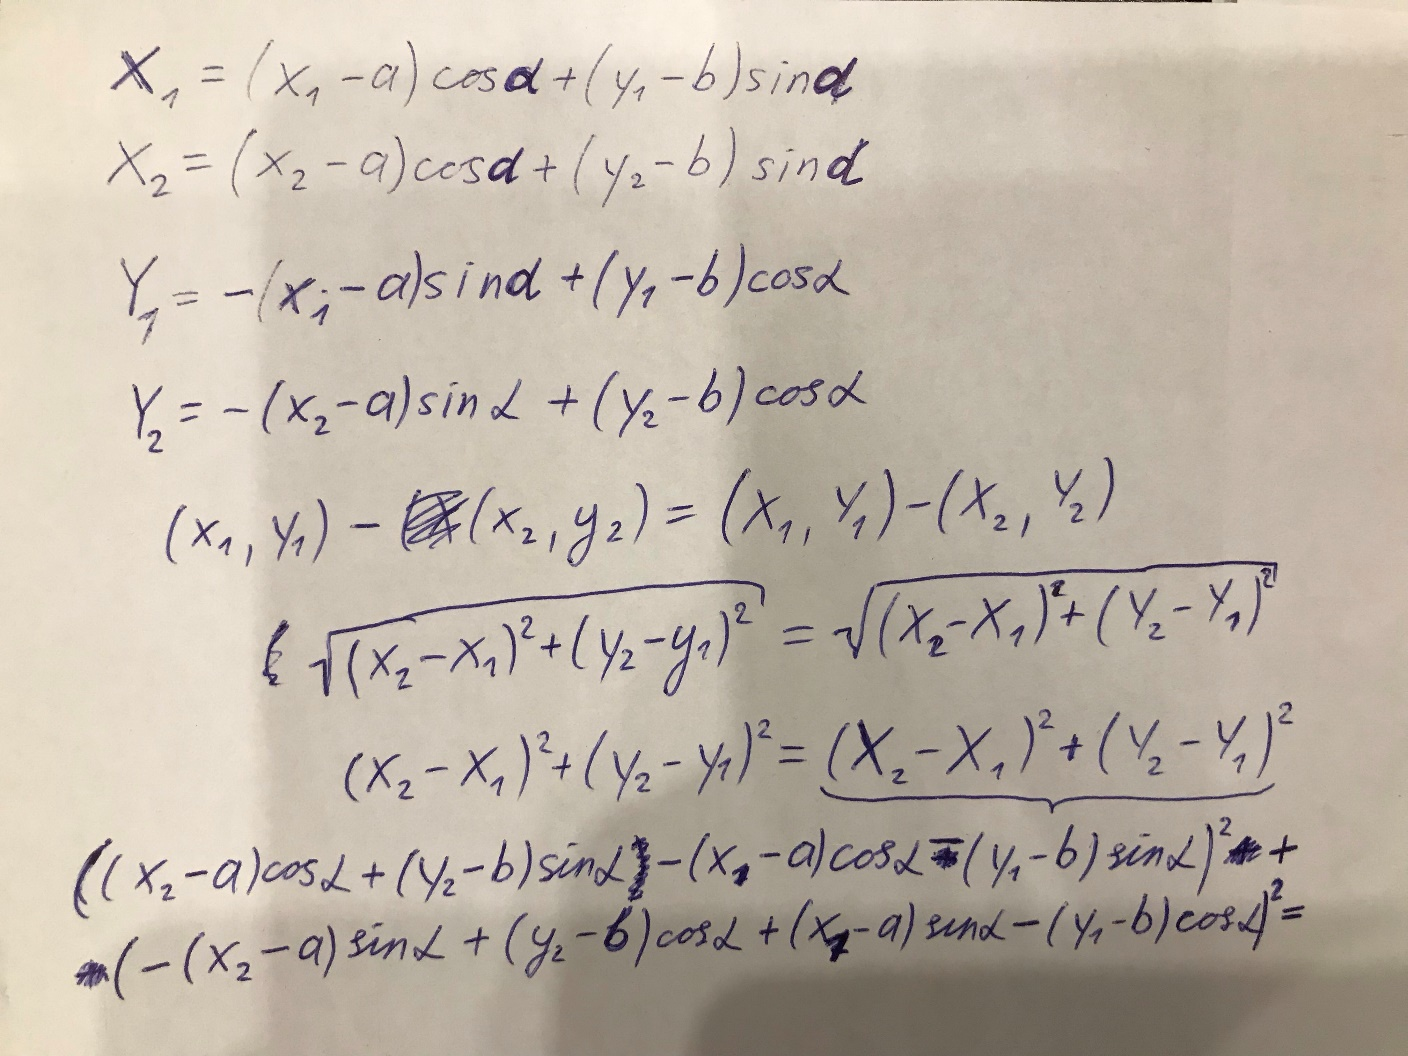 X₁ = (x₁ - a) cosα + (y₁ - b) sinα
X₂ = (x₂ - a) cosα + (y₂ - b) sinα
Y₁ = -(x₁ - a) sinα + (y₁ - b) cosα
Y₂ = -(x₂ - a) sinα + (y₂ - b) cosα
(x₁, y₁) - (x₂, y₂) = (X₁, Y₁) - (X₂, Y₂)
√((x₂ - x₁)² + (y₂ - y₁)²) = √((X₂ - X₁)² + (Y₂ - Y₁)²)
(x₂ - x₁)² + (y₂ - y₁)² = (X₂ - X₁)² + (Y₂ - Y₁)²
((x₂ - a) cosα + (y₂ - b) sinα - (x₁ - a) cosα - (y₁ - b) sinα)² +
(-(x₂ - a) sinα + (y₂ - b) cosα + (x₁ - a) sinα - (y₁ - b) cosα)² =